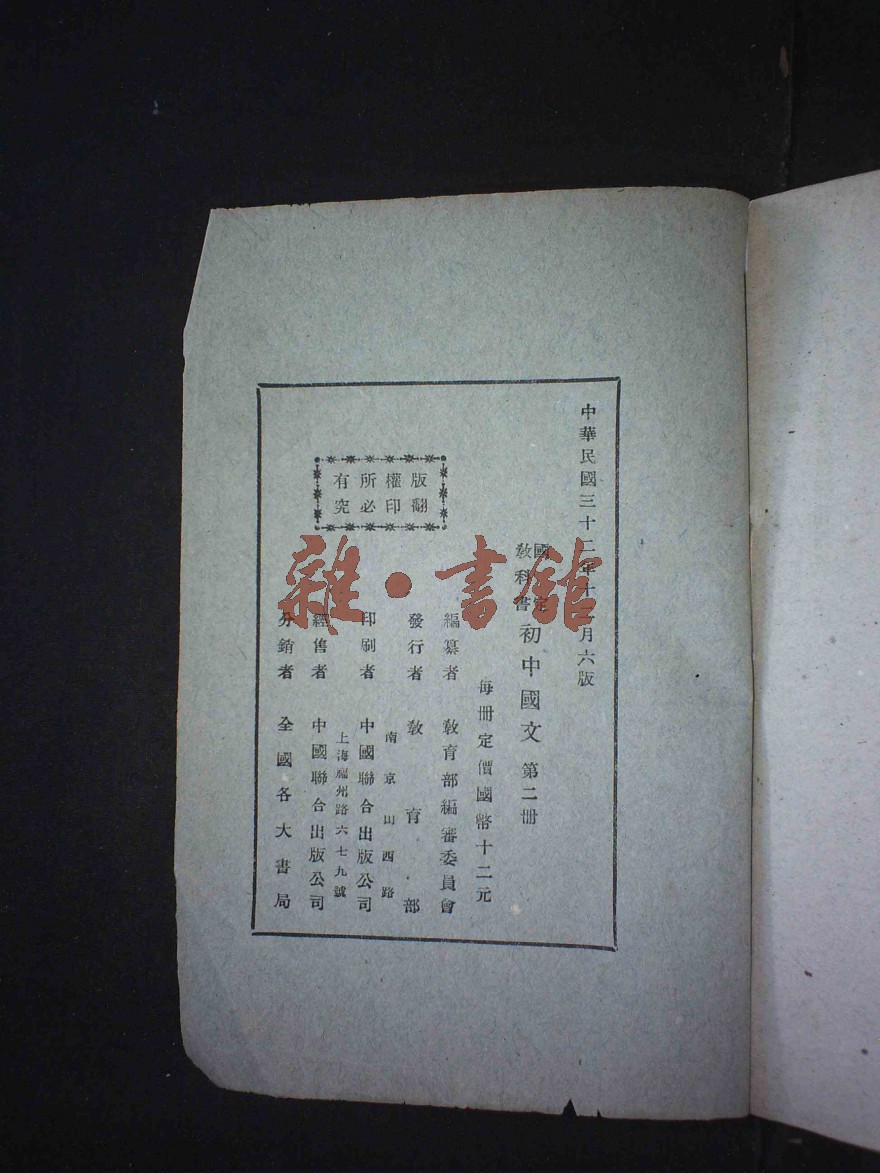 中華民國三十二年十二月六版
國定教科書
初中國文 第二冊
每冊定價國幣十二元
編纂者 教育部編審委員會
發行者 教育部
南京山西路
印刷者 中國聯合出版公司
上海福州路六七九號
經售者 中國聯合出版公司
分銷者 全國各大書局
版權所有
翻印必究
雜·書館